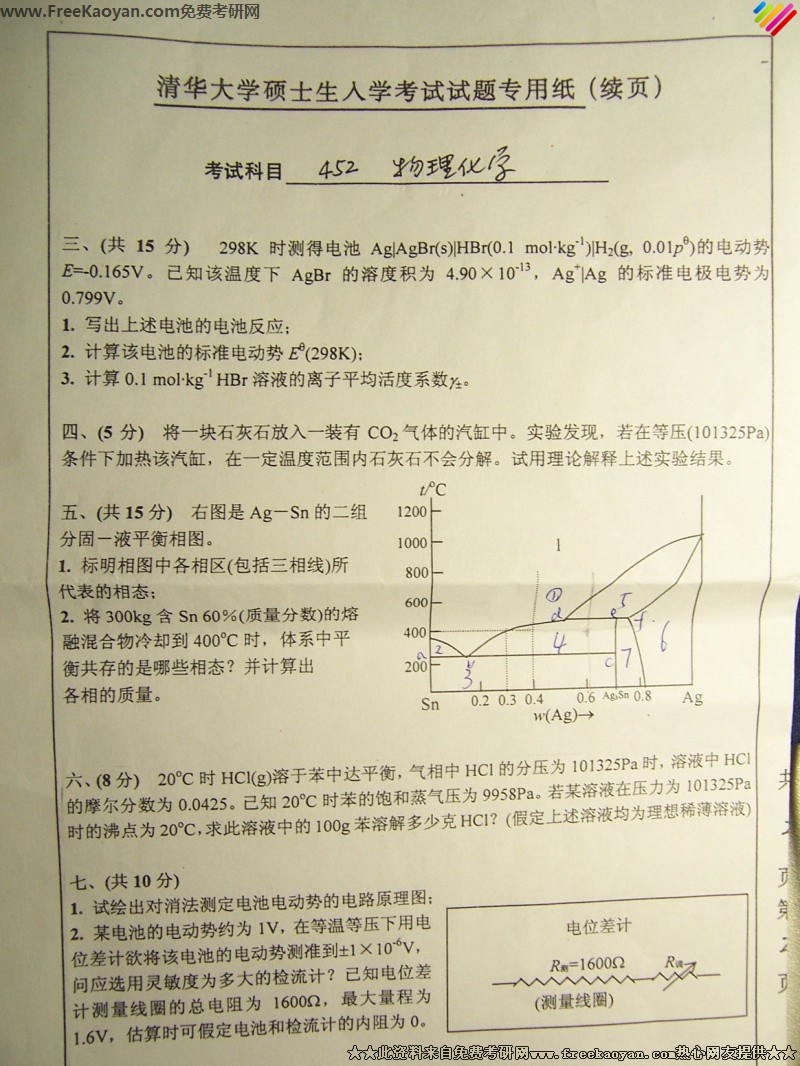 www.FreeKaoyan.com免费考研网
清华大学硕士生入学考试试题专用纸（续页）
考试科目 452 物理化学
三、(共 15 分) 298K 时测得电池 Ag|AgBr(s)|HBr(0.1 mol·kg⁻¹)|H₂(g, 0.01p^θ)的电动势
E=-0.165V。已知该温度下 AgBr 的溶度积为 4.90×10⁻¹³，Ag⁺|Ag 的标准电极电势为
0.799V。
1. 写出上述电池的电池反应；
2. 计算该电池的标准电动势 E^θ(298K)；
3. 计算 0.1 mol·kg⁻¹ HBr 溶液的离子平均活度系数γ±。
四、(5 分) 将一块石灰石放入一装有 CO₂ 气体的汽缸中。实验发现，若在等压(101325Pa)
条件下加热该汽缸，在一定温度范围内石灰石不会分解。试用理论解释上述实验结果。
五、(共 15 分) 右图是 Ag－Sn 的二组
分固－液平衡相图。
1. 标明相图中各相区(包括三相线)所
代表的相态；
2. 将 300kg 含 Sn 60%(质量分数)的熔
融混合物冷却到 400°C 时，体系中平
衡共存的是哪些相态？并计算出
各相的质量。
t/°C
1200
1000
800
600
400
200
l
① d e 5 f 4 6 7 a 2 b 3 c
Sn 0.2 0.3 0.4 0.6 Ag₃Sn 0.8 Ag
w(Ag)→
六、(8 分) 20°C 时 HCl(g)溶于苯中达平衡，气相中 HCl 的分压为 101325Pa 时，溶液中 HCl
的摩尔分数为 0.0425。已知 20°C 时苯的饱和蒸气压为 9958Pa。若某溶液在压力为 101325Pa
时的沸点为 20°C，求此溶液中的 100g 苯溶解多少克 HCl？(假定上述溶液均为理想稀薄溶液)
七、(共 10 分)
1. 试绘出对消法测定电池电动势的电路原理图；
2. 某电池的电动势约为 1V，在等温等压下用电
位差计欲将该电池的电动势测准到±1×10⁻⁶V，
问应选用灵敏度为多大的检流计？已知电位差
计测量线圈的总电阻为 1600Ω，最大量程为
1.6V，估算时可假定电池和检流计的内阻为 0。
电位差计
R测=1600Ω R调
(测量线圈)
页
第
2
页
★★此资料来自免费考研网www.freekaoyan.com热心网友提供★★